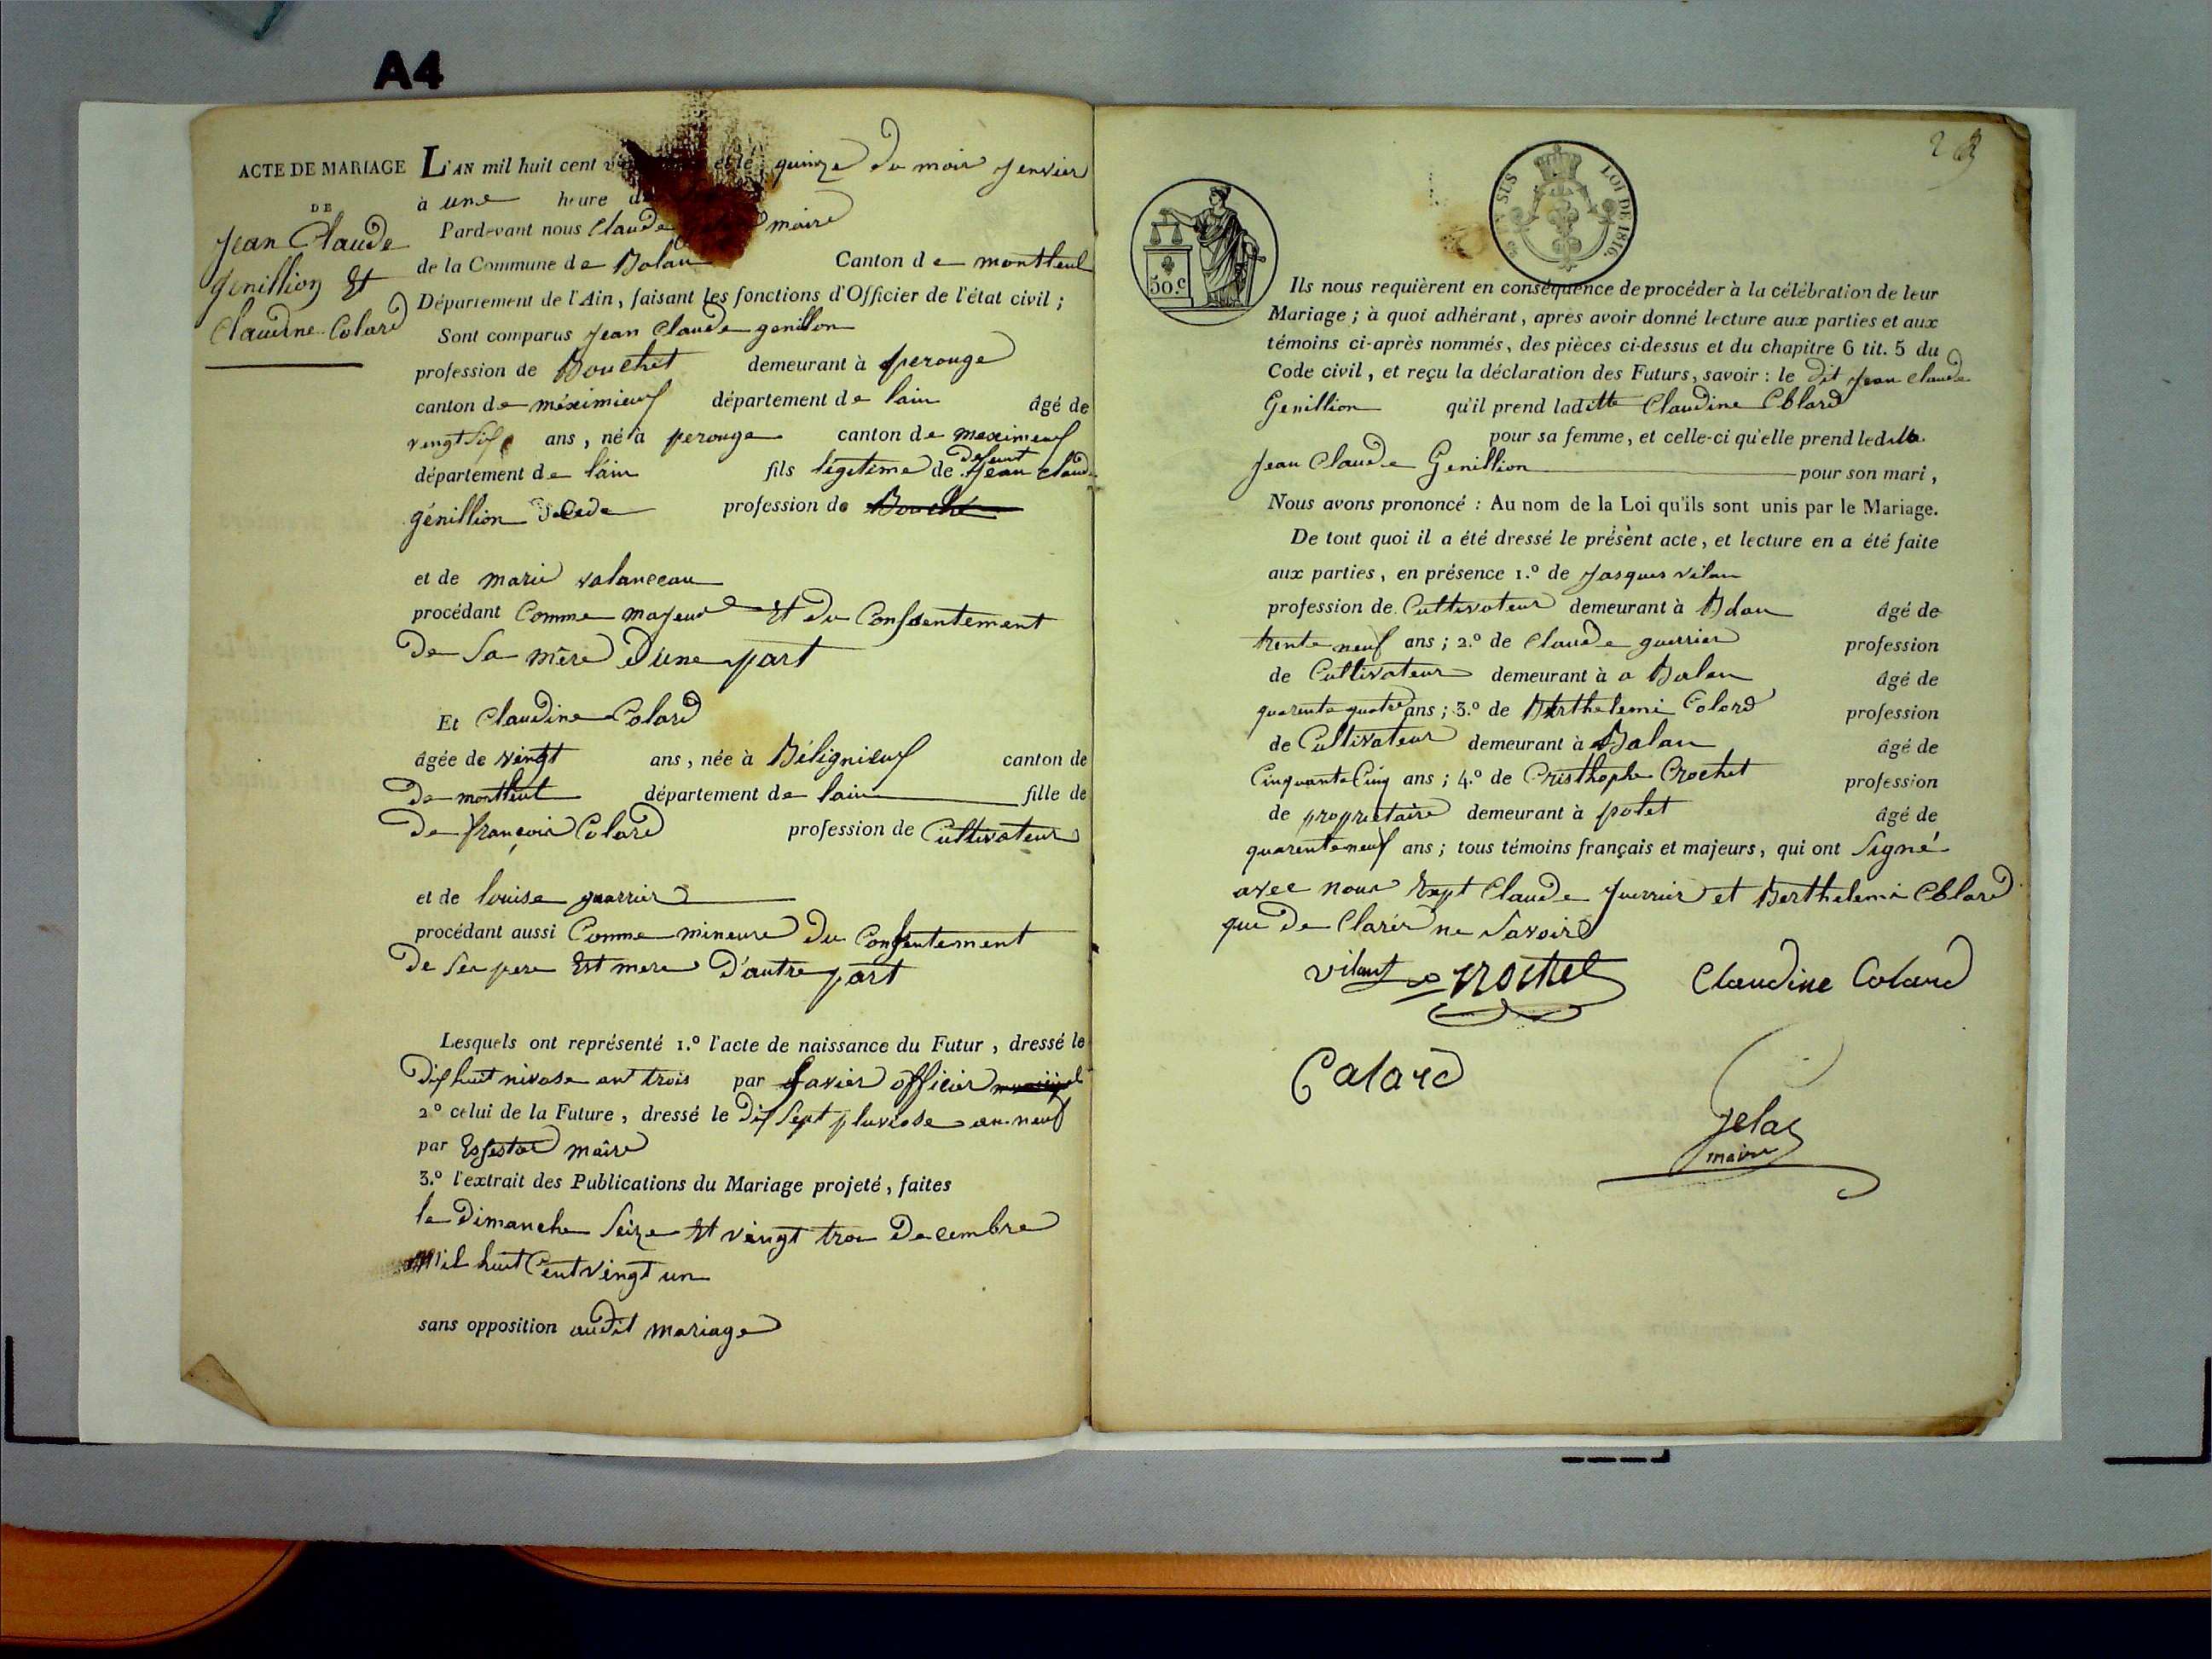 A4
ACTE DE MARIAGE
DE
Jean Claude
Genillion Et
Claudine Colard
L'AN mil huit cent et le quinze du mois Jenvier
à une heure
Pardevant nous Claude maire
de la Commune de Balan Canton de montluel
Département de l'Ain, faisant les fonctions d'Officier de l'état civil ;
Sont comparus Jean Claude genillon
profession de Bouchet demeurant à perouge
canton de méximieuf département de lain âgé de
vingt sif ans, né à perouge canton de meximeuf
département de lain fils légitime de defunt Jean Claude
génillion décéde profession de Bouché
et de marie valanceau
procédant Comme majeur Et du Consentement
De Sa mère d'une part
Et Claudine Colard
âgée de vingt ans, née à Béligneuf canton de
De montluel département de lain fille de
De françois Colard profession de Cultivateur
et de louise guerrier
procédant aussi Comme mineure du Consentement
De Ses pere Est mere D'autre part
Lesquels ont représenté 1.º l'acte de naissance du Futur, dressé le
Dif huit nivose an trois par Savier officier
2º celui de la Future, dressé le Dif Sept pluviose an neuf
par maire
3.º l'extrait des Publications du Mariage projeté, faites
le Dimanche Seize Et vingt troi Decembre
Mil huit Cent vingt un
sans opposition audit mariage
23
50.C
LOI DE 1816.
Ils nous requièrent en conséquence de procéder à la célébration de leur
Mariage ; à quoi adhérant, après avoir donné lecture aux parties et aux
témoins ci-après nommés, des pièces ci-dessus et du chapitre 6 tit. 5 du
Code civil, et reçu la déclaration des Futurs, savoir : le dit Jean Claude
Genillion qu'il prend laditte Claudine Colard
pour sa femme, et celle-ci qu'elle prend leditte
Jean Claude Genillion pour son mari,
Nous avons prononcé : Au nom de la Loi qu'ils sont unis par le Mariage.
De tout quoi il a été dressé le présent acte, et lecture en a été faite
aux parties, en présence 1.º de Jasques vilan
profession de Cultivateur demeurant à Balan âgé de
trente neuf ans ; 2.º de Claude guerrier profession
de Cultivateur demeurant à a Balan âgé de
quarente quatre ans ; 3.º de Berthelemi Colard profession
de Cultivateur demeurant à Balan âgé de
Cinquante Cinq ans ; 4.º de Cristhophe Crochet profession
de propriétaire demeurant à polet âgé de
quarente neuf ans ; tous témoins français et majeurs, qui ont Signé
avec nous Exept Claude guerrier et Berthelemi Colard
que De Clarér ne Savoir
vilant crochet Claudine Colard
Calard
Jelas
maire